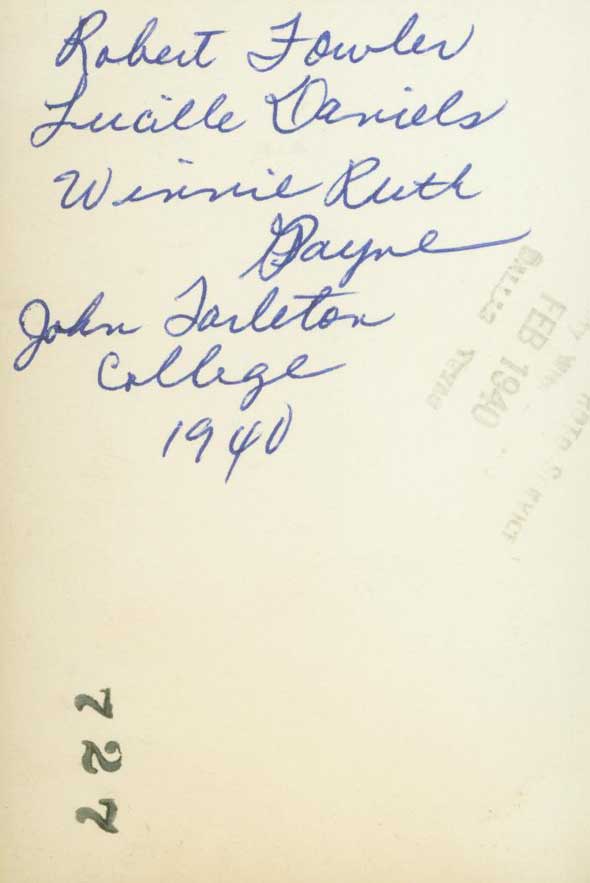 Robert Fowler
Lucille Daniels
Winnie Ruth
Payne
John Tarleton
College
1940
DALLAS
TEXAS
FEB 1940
SERVICE
727